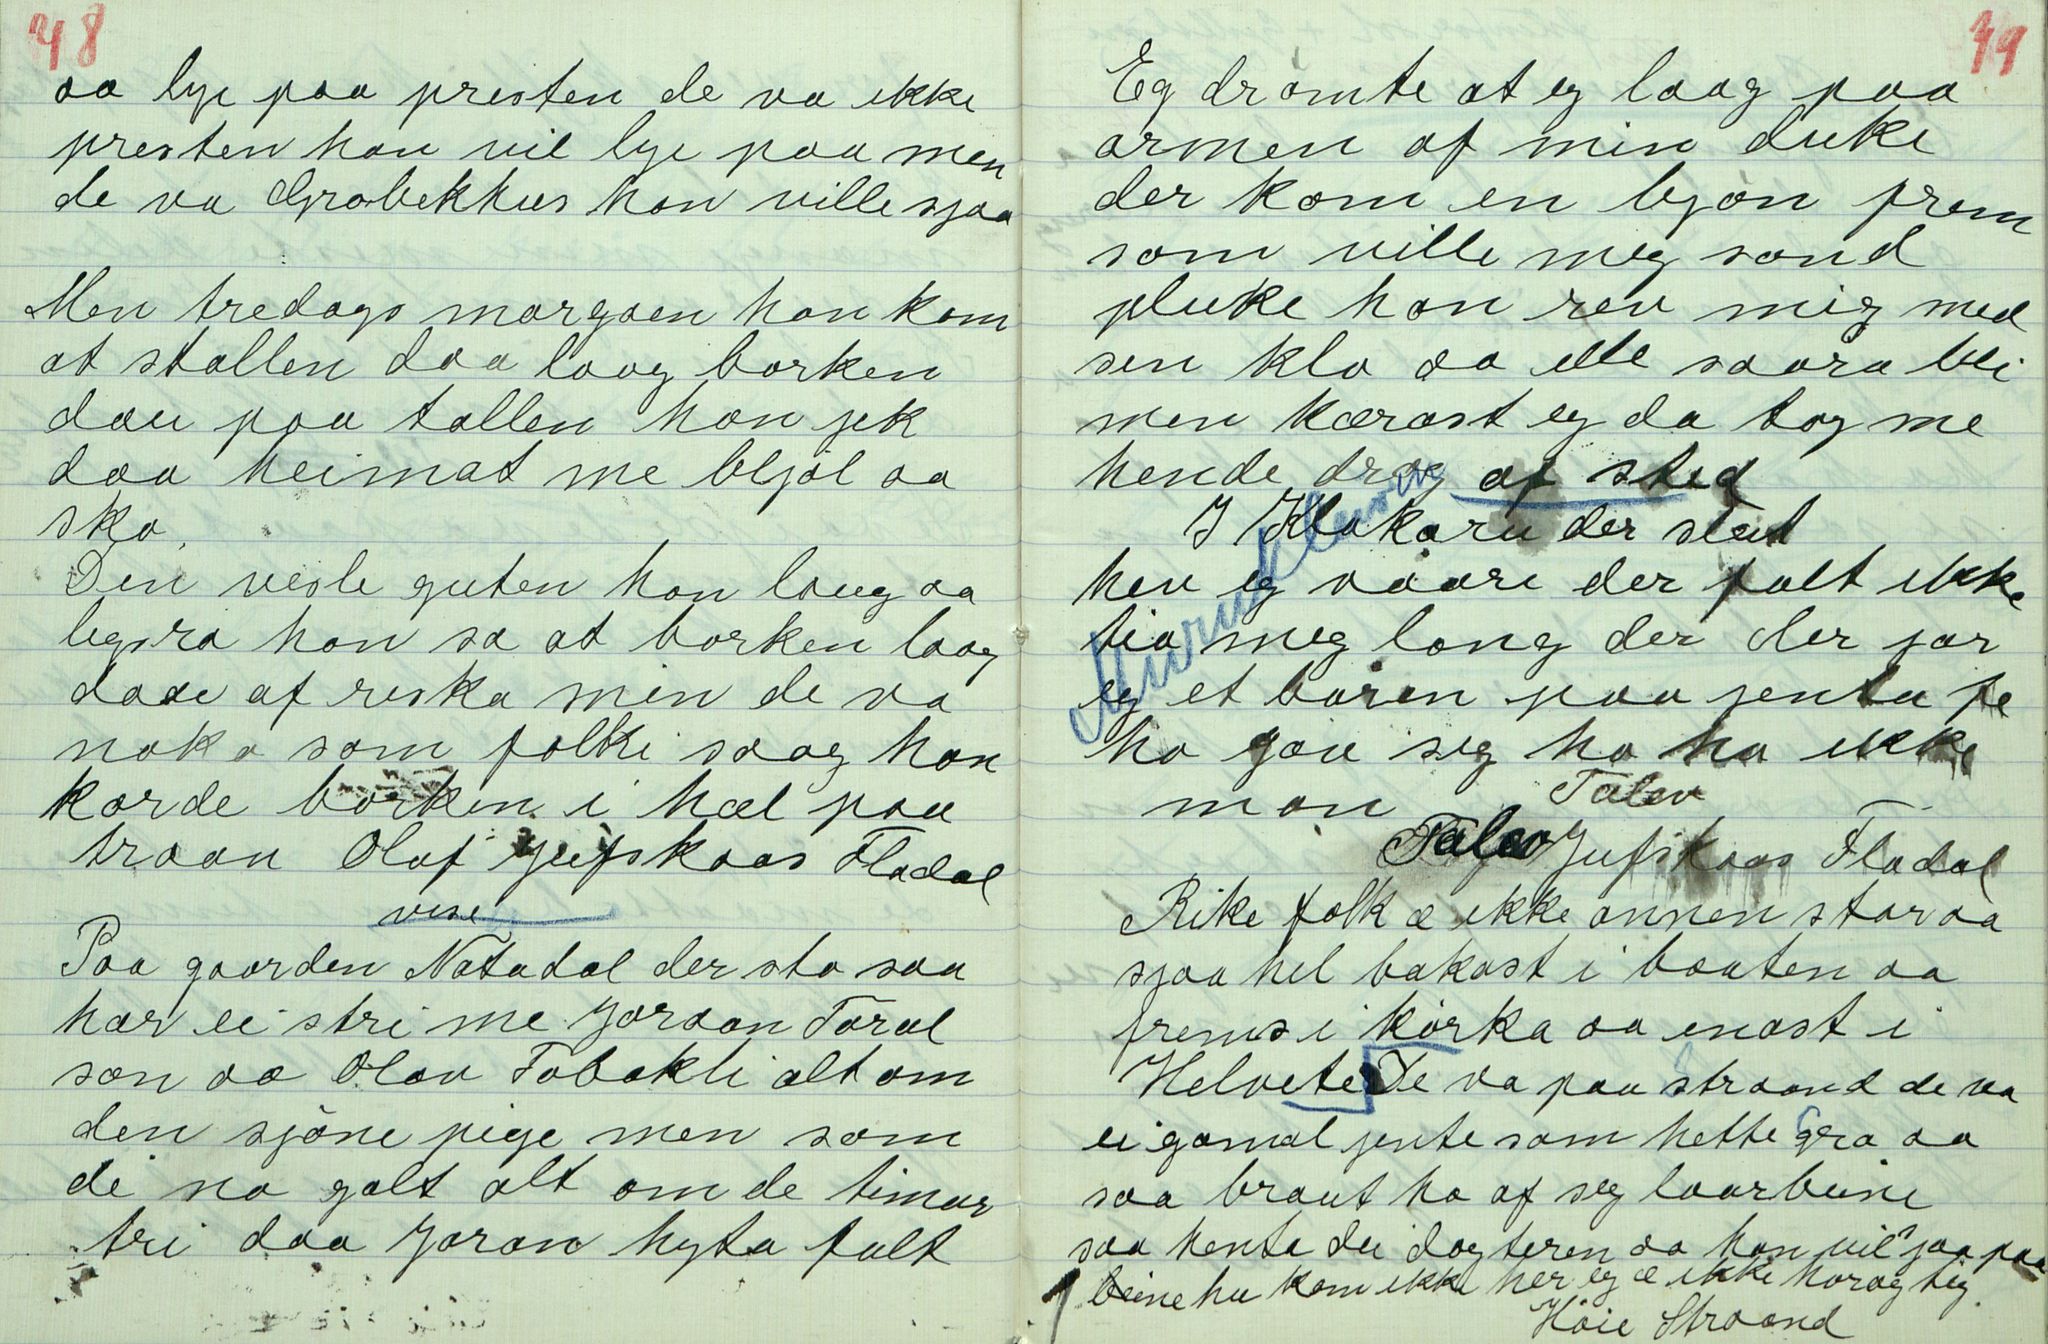 48
aa lye paa presten de va ikke
presten han vil lye paa men
de va Grabekkhus han ville sjaa
Men tredags morgaen han kom
at stallen daa laag borken
dau paa tallen han jek
daa heimat me bljøl aa
sko.
Den vesle guten han laug aa
legsra han sa at borken laag
daae af reska men de va
noko som folki saag han
kørde borken i hæl paa
traan Olaf Jufskaas Fladal
vise
Paa gaarden Natadal der sto saa
hær ei stri me Jøraan Taral
søn aa Olav Tobakli alt om
den sjöne pige men som
de na galt alt om de timar
tri daa Jøron hyta falt
49
Eg drømte at eg laag paa
armen af min duke
der kom en bjøn frem
som ville meg sønd
pluke han rev mig med
sen klo aa ille saara blei
men kærast eg da tog me
hende drog af sted
I Klokaru der slut
hev eg vaare der falt ikke
tia meg long der der jør
eg et baren paa jenta fe
ho gav seg ho ha ikke
man
Talev
Talev Jufskaas Fladal
Rike folk æ ikke annen stør aa
sjaa hel bakast i baaten aa
frems i kørka aa enøst i
Helvete De va paa Straand de va
ei gamal jente som hette Gro aa
saa braut ho af seg laarbeine
saa henta dei dogteren aa han vil sjaa paa
beine hu kom ikke her eg æ ikke horag tig.
Høie Straand